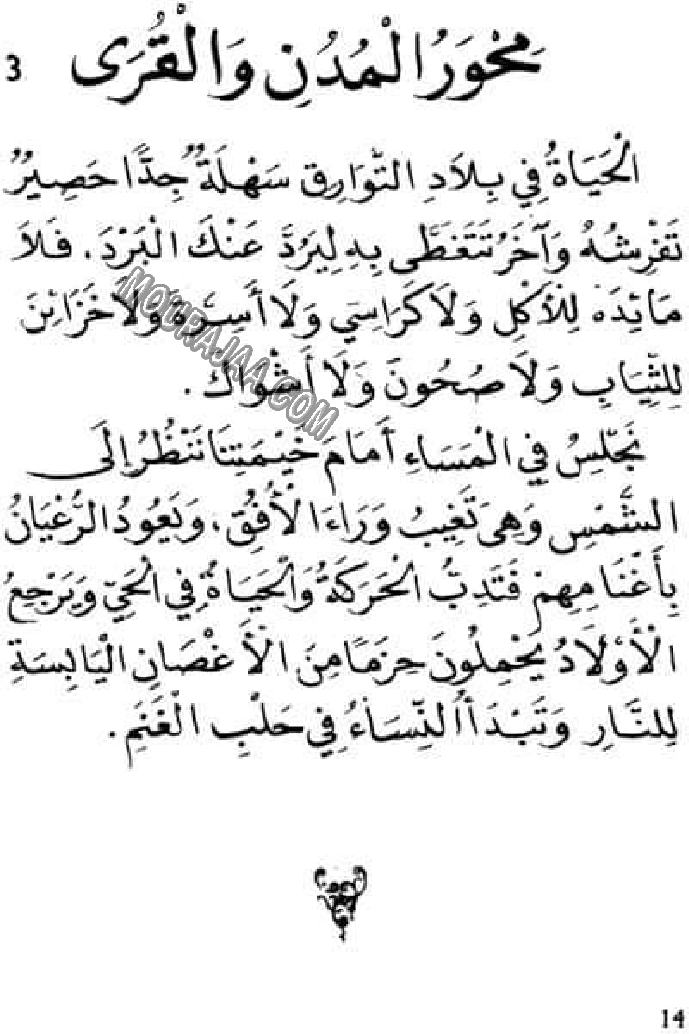 3 مَحْوَرُ الْمُدُنِ وَالْقُرَى
الْحَيَاةُ فِي بِلَادِ التَّوَارِقِ سَهْلَةٌ جِدًّا حَصِيرٌ
تَفْرِشُهُ وَآخَرُ تَتَغَطَّى بِهِ لِيَرُدَّ عَنْكَ الْبَرْدَ، فَلَا
مَائِدَة لِلْأَكْلِ وَلَا كَرَاسِي وَلَا أَسِرَّة وَلَا خَزَائِنَ
لِلثِّيَابِ وَلَا صُحُونَ وَلَا أَشْوَاكَ .
نَجْلِسُ فِي الْمَسَاءِ أَمَامَ خَيْمَتِنَا نَنْظُرُ إِلَى
الشَّمْسِ وَهِيَ تَغِيبُ وَرَاءَ الْأُفُقِ، وَيَعُودُ الرُّعْيَانُ
بِأَغْنَامِهِمْ فَتَدِبُّ الْحَرَكَةُ وَالْحَيَاةُ فِي الْحَيِّ وَيَرْجِعُ
الْأَوْلَادُ يَحْمِلُونَ حِزَمًا مِنَ الْأَغْصَانِ الْيَابِسَةِ
لِلنَّارِ وَتَبْدَأُ النِّسَاءُ فِي حَلْبِ الْغَنَمِ .
MOURAJAA.COM
14